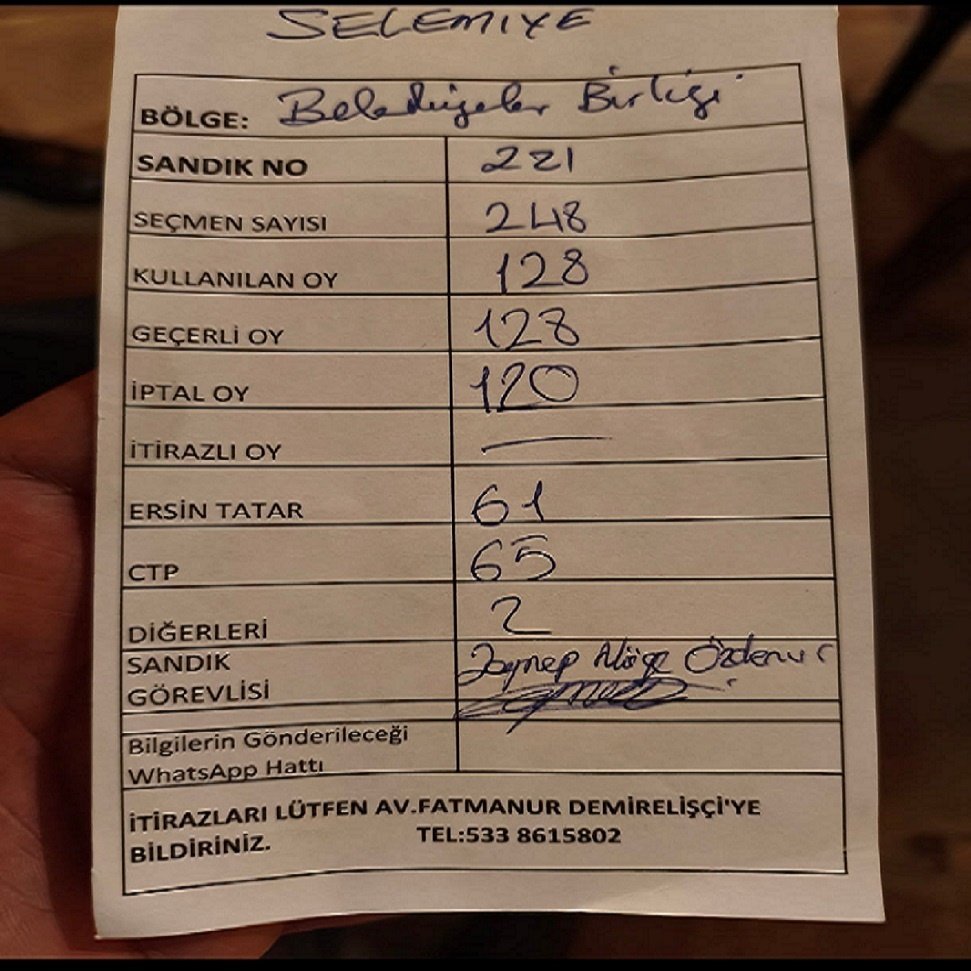 SELEMIYE
BÖLGE: Belediyeler Birliği
SANDIK NO 221
SEÇMEN SAYISI 248
KULLANILAN OY 128
GEÇERLİ OY 128
İPTAL OY 120
İTİRAZLI OY —
ERSİN TATAR 61
CTP 65
DİĞERLERİ 2
SANDIK GÖREVLİSİ Zeynep Özdenur
Bilgilerin Gönderileceği
WhatsApp Hattı
İTİRAZLARI LÜTFEN AV.FATMANUR DEMİRELİŞÇİ'YE
BİLDİRİNİZ. TEL:533 8615802